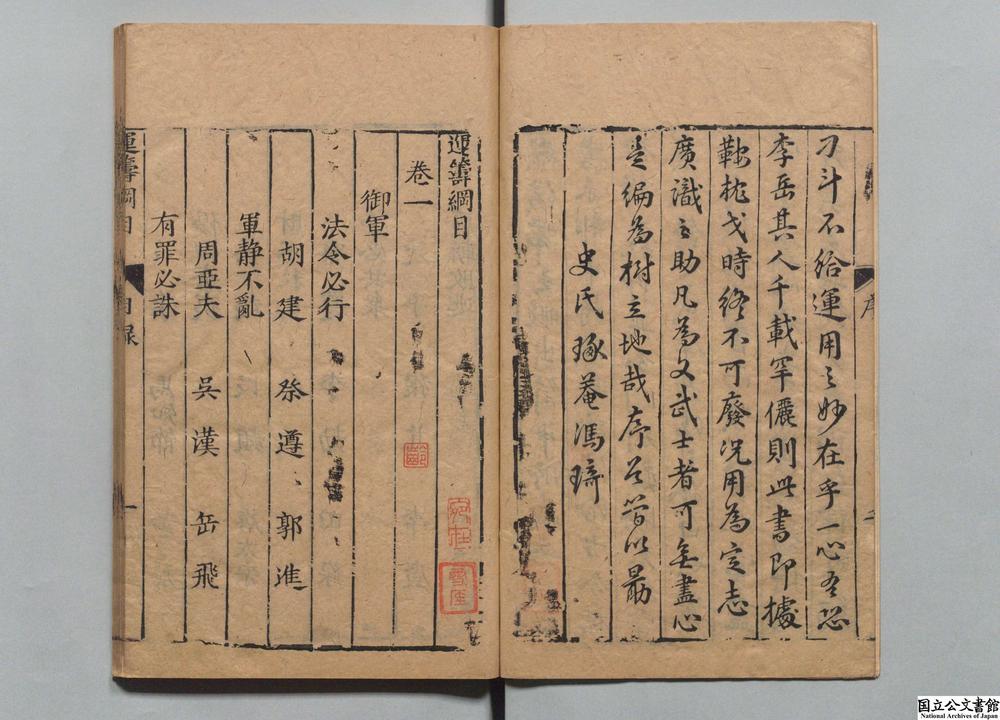 刁斗不給運用之妙在乎一心吾恐
李岳其人千載罕儷則此書即據
鞍枕戈時終不可廢況用為定志
廣識之助凡為文武士者可無盡心
是編為樹立地哉序是嘗以勗
史氏琢菴馮琦
序
運籌綱目
卷一
御軍
法令必行
胡建 祭遵 郭進
軍静不亂
周亞夫 吳漢 岳飛
有罪必誅
運籌綱目
目録
一
国立公文書館
National Archives of Japan